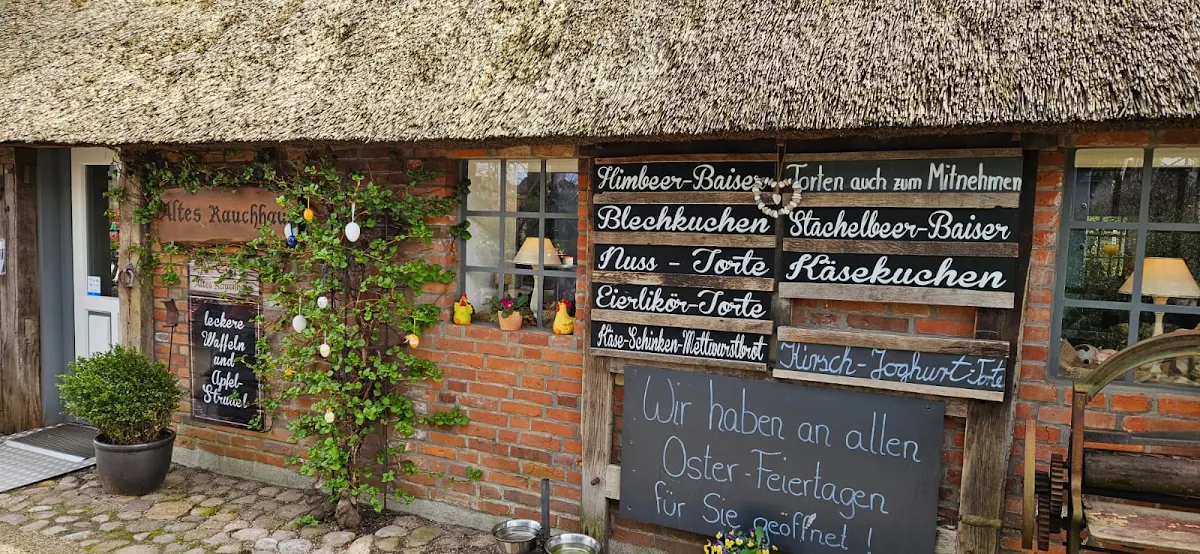 Altes Rauchhau
Altes Rauchhaus
leckere
Waffeln
und
Apfel-
Strudel
Himbeer-Baiser
Blechkuchen
Nuss - Torte
Eierlikör-Torte
Käse-Schinken-Mettwurstbrot
Torten auch zum Mitnehmen
Stachelbeer-Baiser
Käsekuchen
Kirsch-Joghurt-Torte
Wir haben an allen
Oster-Feiertagen
für Sie geöffnet!